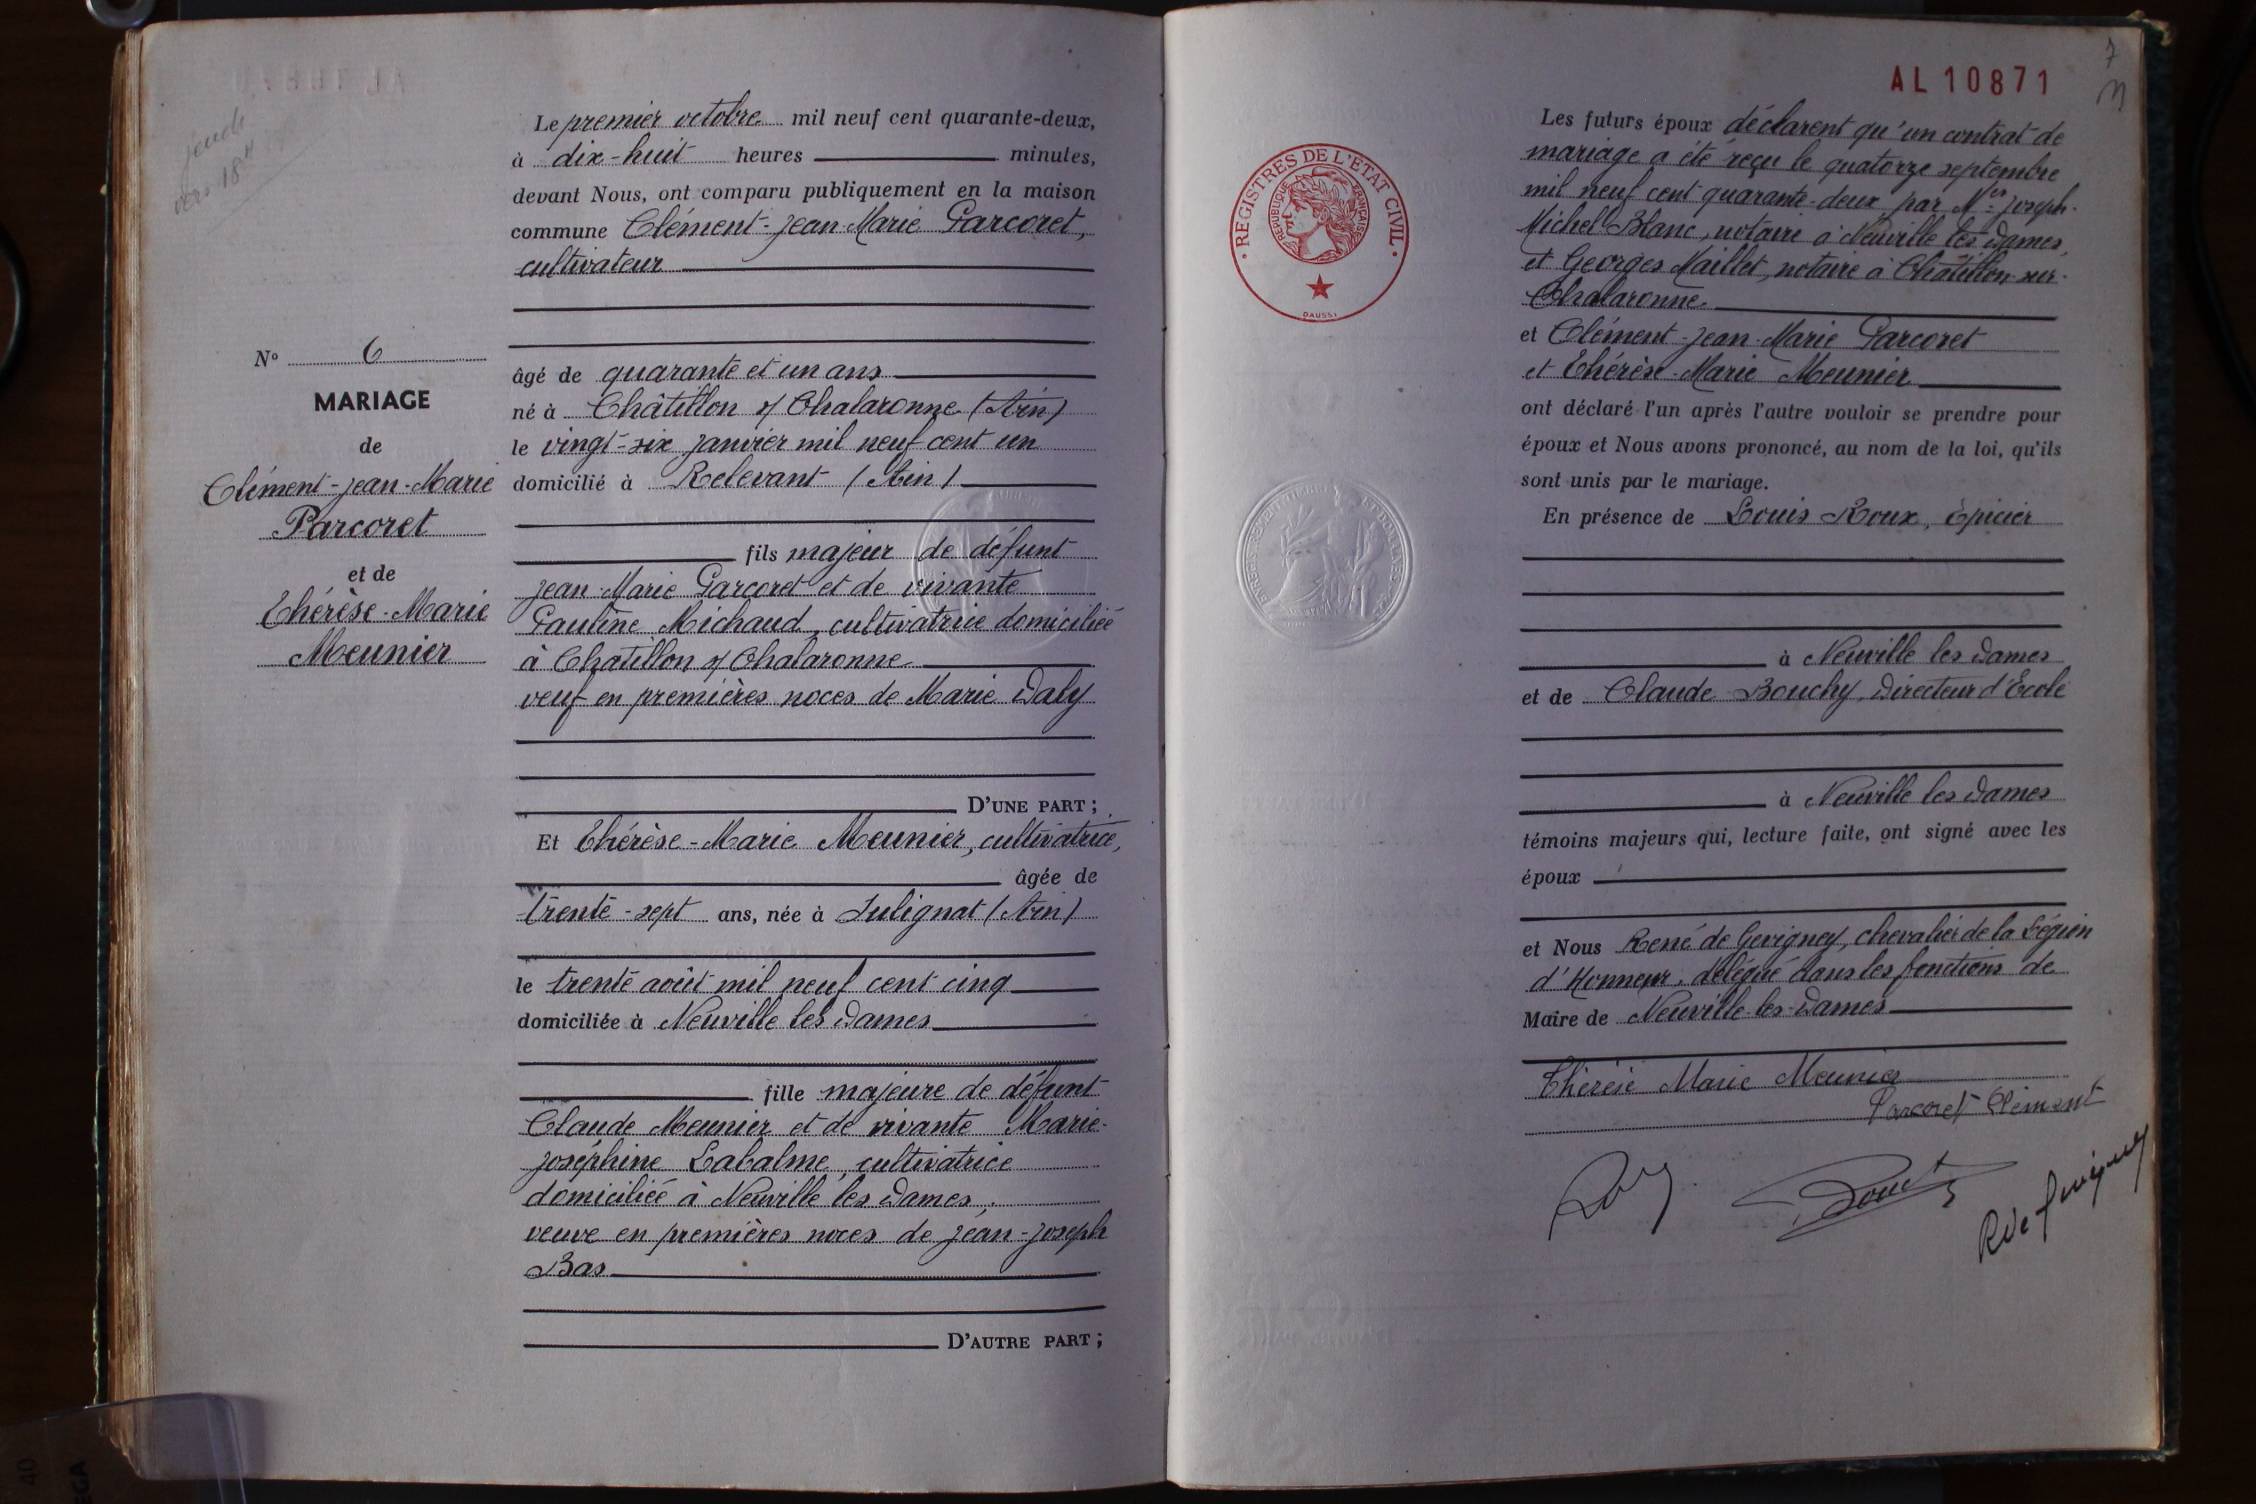 jeudi
vers 18H
N° 6
MARIAGE
de
Clément-Jean-Marie
Parcoret
et de
Thérèse-Marie
Meunier
Le premier octobre mil neuf cent quarante-deux,
à dix-huit heures minutes,
devant Nous, ont comparu publiquement en la maison
commune Clément-Jean-Marie Parcoret,
cultivateur
âgé de quarante et un ans
né à Châtillon s/ Chalaronne (Ain)
le vingt-six janvier mil neuf cent un
domicilié à Relevant (Ain)
fils majeur de défunt
Jean-Marie Parcoret et de vivante
Pauline Michaud, cultivatrice domiciliée
à Châtillon s/ Chalaronne
veuf en premières noces de Marie Daly
D'UNE PART ;
Et Thérèse-Marie Meunier, cultivatrice,
âgée de
trente-sept ans, née à Sulignat (Ain)
le trente août mil neuf cent cinq
domiciliée à Neuville les Dames
fille majeure de défunt
Claude Meunier et de vivante Marie-
Joséphine Labalme, cultivatrice
domiciliée à Neuville les Dames,
veuve en premières noces de Jean-Joseph
Bas
D'AUTRE PART ;
7
AL 10871
REGISTRES DE L'ÉTAT CIVIL
RÉPUBLIQUE FRANÇAISE
DAUSSI
Les futurs époux déclarent qu'un contrat de
mariage a été reçu le quatorze septembre
mil neuf cent quarante-deux par Mes Joseph-
Michel Blanc, notaire à Neuville les Dames,
et Georges Maillet, notaire à Châtillon-sur-
Chalaronne.
et Clément-Jean-Marie Parcoret
et Thérèse-Marie Meunier
ont déclaré l'un après l'autre vouloir se prendre pour
époux et Nous avons prononcé, au nom de la loi, qu'ils
sont unis par le mariage.
En présence de Louis Roux, épicier
à Neuville les Dames
et de Claude Bouchy, Directeur d'École
à Neuville les Dames
témoins majeurs qui, lecture faite, ont signé avec les
époux
et Nous René de Gevigney, chevalier de la Légion
d'Honneur, délégué dans les fonctions de
Maire de Neuville-les-Dames
Thérèse Marie Meunier
Parcoret Clément
R de Gevigney